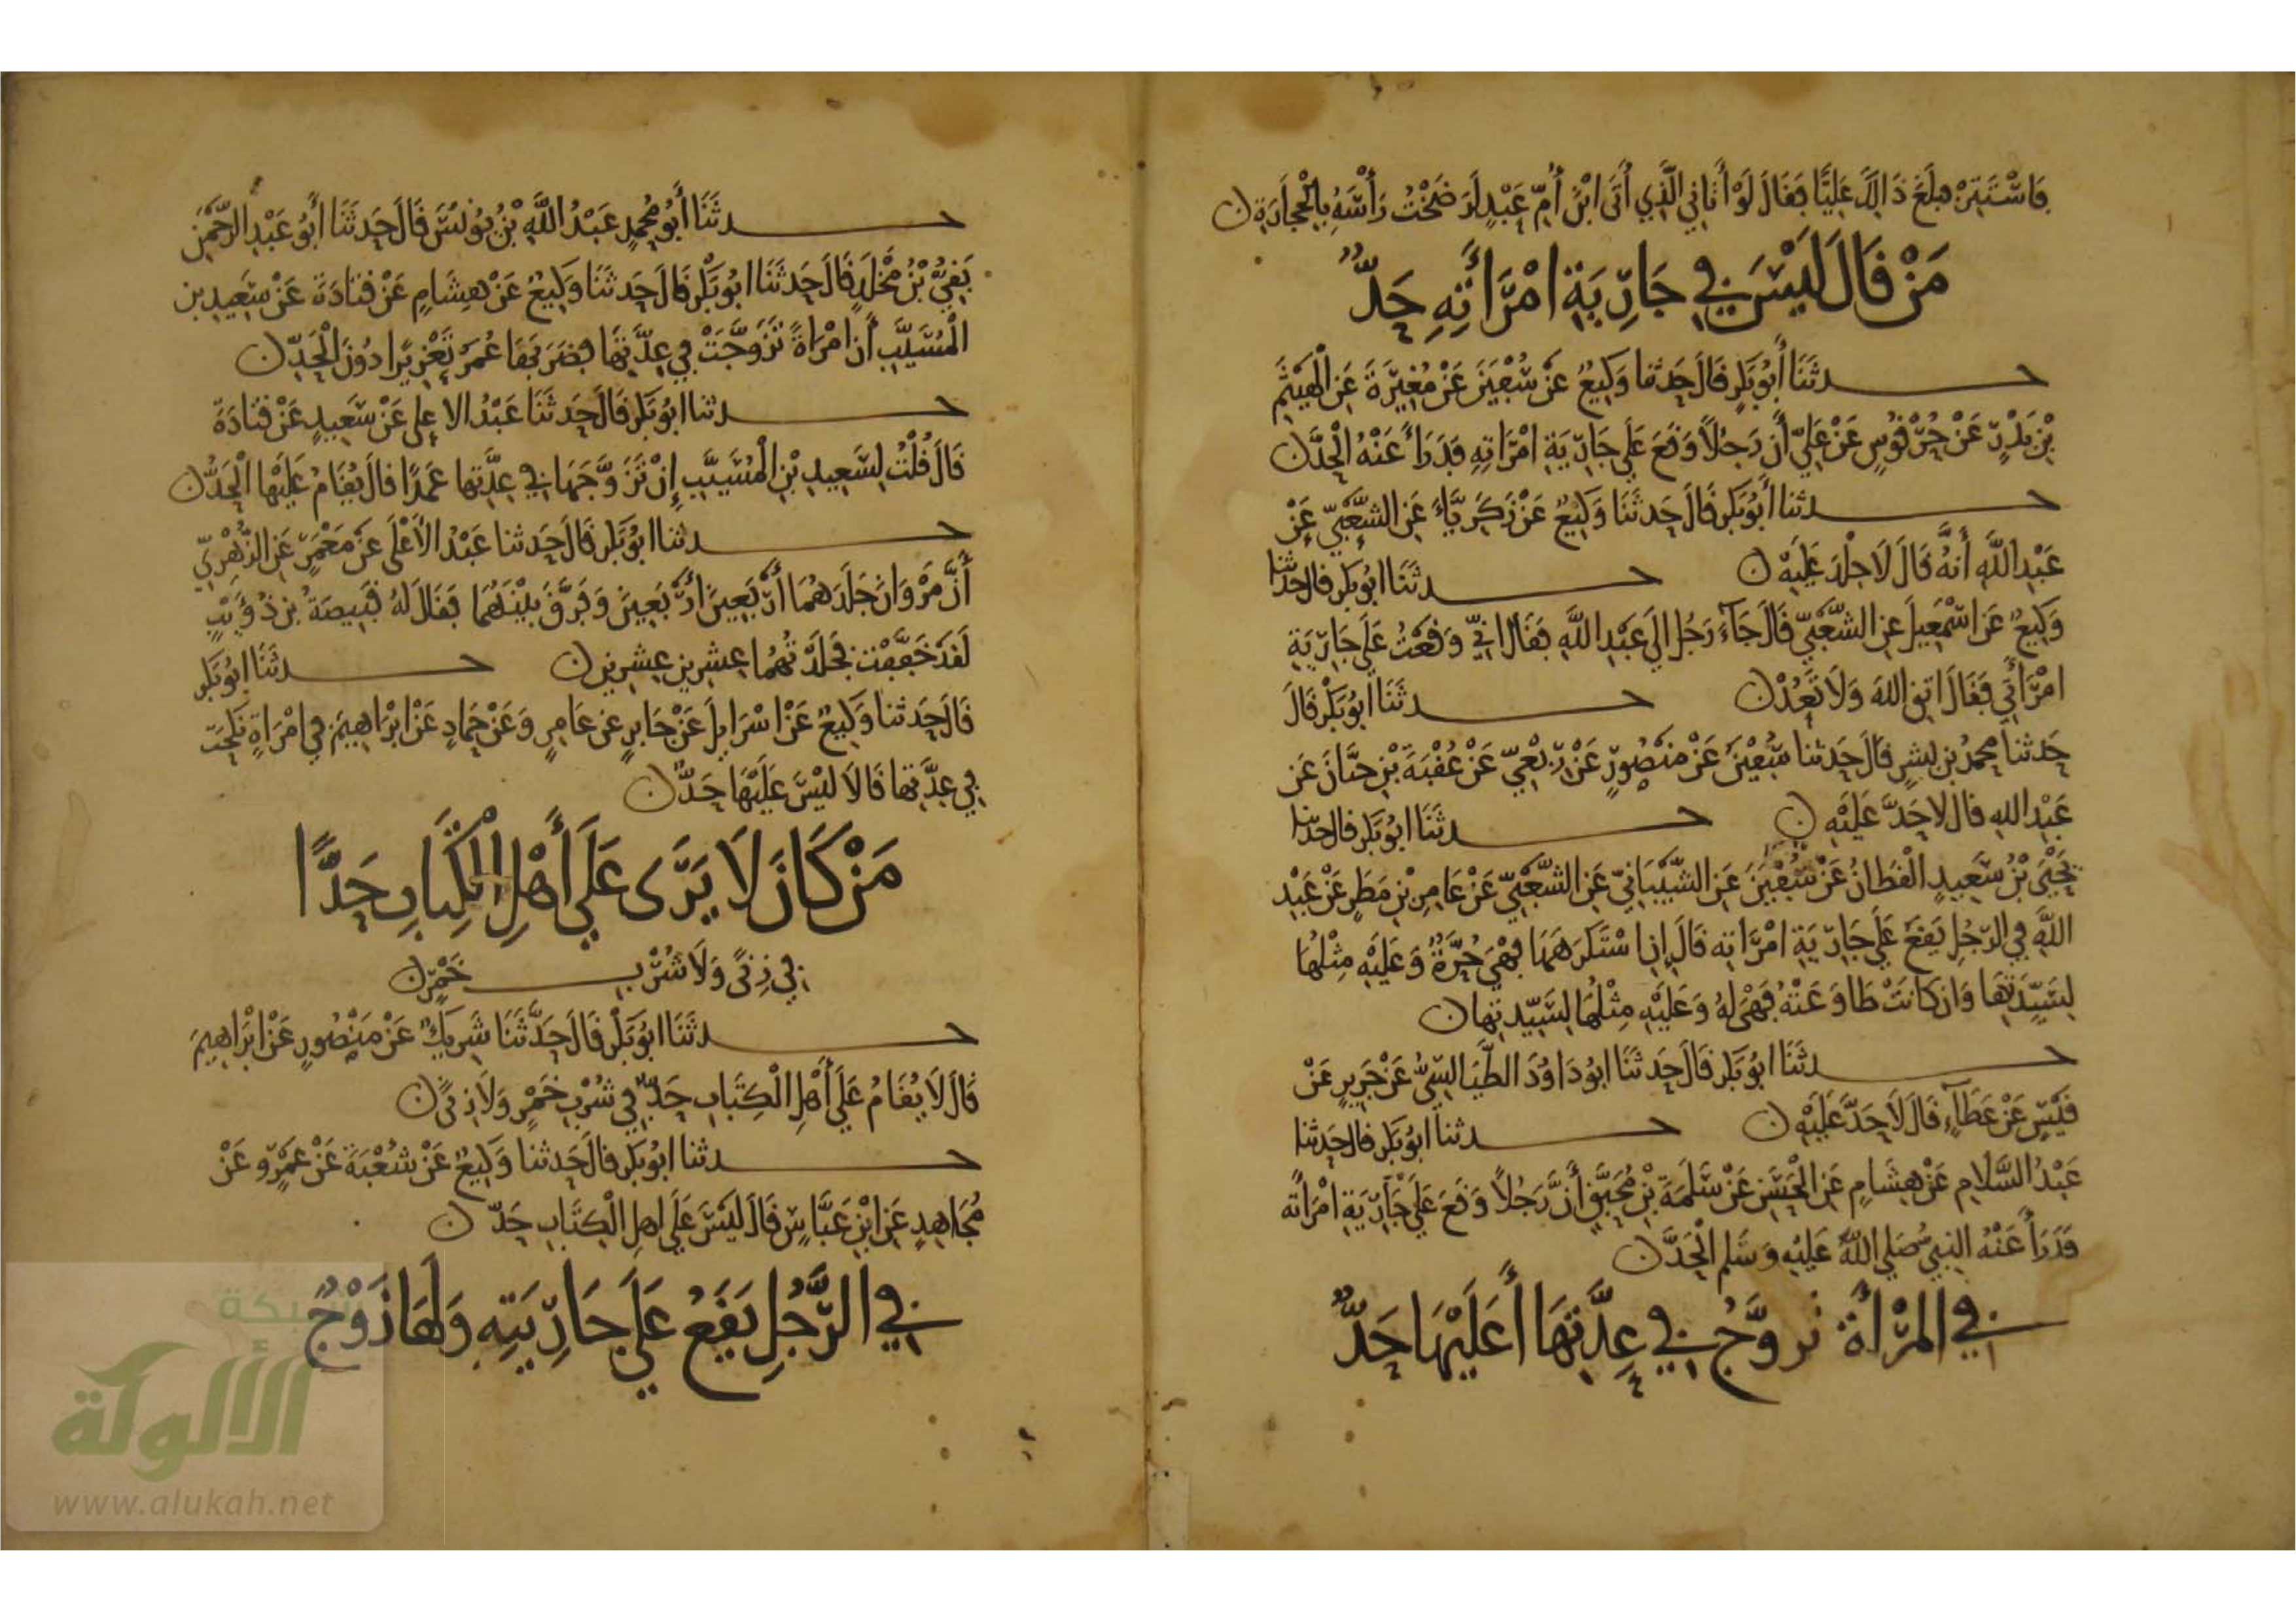 فَاسْتَتِرْ فبلَغَ ذَالِكَ عَلِيًّا فَقَالَ لَوْ أَتَانِي الَّذِي أَتَى ابْنَ أُمِّ عَبْدٍ لَرَضَخْتُ رَأْسَهُ بِالْحِجَارَةِ ن
مَنْ قَالَ لَيْسَ فِي جَارِيَةِ امْرَأَتِهِ حَدٌّ
حدثَنَا أَبُو بَكْرٍ قَالَ حَدثنا وَكِيعٌ عَنْ سُفْيَنَ عَنْ مُغِيرَةَ عَنِ الْهَيْثَمِ
بْنِ بَدْرٍ عَنْ حُرْقُوسٍ عَنْ عَلِيٍّ أَن رَجُلاً وَقَعَ عَلَى جَارِيَةِ امْرَاتِهِ فَدَرَأَ عَنْهُ الْحَدَّ ن
حدثنا أَبُو بَكْرٍ قَالَ حَدثَنَا وَكِيعٌ عَنْ زَكَرِيَّاءَ عَنِ الشَّعْبِيِّ عَنْ
عَبْدِ اللَّهِ أَنهُ قَالَ لَا جلْدَ عَلَيْهِ ن حدثَنَا ابُو بَكْرٍ قال حدثنا
وَكِيعٌ عَنْ اسْمَعِيلَ عن الشَّعْبِيِّ قَالَ جَاءَ رَجُل إلَى عَبْدِ اللَّهِ فَقَالَ انِّي وَقَعْتُ عَلَى جَارِيَةِ
امْرَأَتِي فَقَالَ اتق اللهَ وَلَا تَعُدْ ن حدثَنَا ابُو بَكْرٍ قَالَ
حَدثنا محمدُ بن بشرٍ قَالَ حَدثنا سُفْيَنُ عَنْ مَنْصُورٍ عَنْ رِبْعِيٍّ عَنْ عُقْبَةَ بْنِ حيَّانَ عَن
عَبْدِ الله قال لا حَدَّ عَلَيْهِ ن حدثَنَا ابُو بَكْرٍ قال حدثنا
يَحْيَى بْنُ سَعِيدٍ الْقَطانُ عَنْ سُفْيَنَ عَنِ الشَّيْبَانِيِّ عَنِ الشَّعْبِيِّ عَنْ عَامِرِ بْنِ مَطَرٍ عَنْ عَبْدِ
اللَّهِ فِي الرّجُلِ يَقَعُ عَلَى جَارِيَةِ امْرَاتِهِ قَالَ إن اسْتَكْرَهَهَا فَهْيَ حُرَّةٌ وَعَلَيْهِ مِثْلُهَا
لِسَيِّدَتِهَا وَان كانَتْ طَاوَعَتْهُ فَهْيَ لَهُ وَعَلَيْهِ مِثْلُهَا لِسَيِّدتِهَا ن
حدثَنَا ابُو بَكْرٍ قَالَ حَدثَنَا ابُو دَاوُدَ الطَّيَالِسِيُّ عَنْ جَرِيرٍ عَنْ
قَيْسٍ عَنْ عَطَاءٍ قَالَ لَا حَدَّ عَلَيْهِ ن حدثنا ابُو بَكْرٍ قال حَدثنا
عَبْدُ السَّلَامِ عَنْ هِشَامٍ عَنِ الْحَسَنِ عَنْ سَلَمَةَ بْنِ مُحَبِّقٍ أَنَّ رَجُلاً وَقَعَ عَلَى جَارِيَةِ امْرَأَتِه
فَدَرَأَ عَنْهُ النبِيُّ صَلى اللَّهُ عَلَيْهِ وَسَلم الْحَدَّ ن
فِي الْمَرْأَةِ تزوَّجُ فِي عِدَّتِهَا أَعَلَيْهَا حَدٌّ
حدثَنَا أَبُو مُحمدٍ عَبْدُ اللَّهِ بْنُ يُونُسَ قَالَ حَدثَنَا أَبُو عَبْدِ الرَّحْمَنِ
بَقِيُّ بْنُ مَخْلَدٍ قَالَ حَدثَنَا ابُو بَكْرٍ قَالَ حَدثنَا وَكِيعٌ عَنْ هِشَامٍ عَنْ قتادَةَ عَنْ سَعِيدِ بن
الْمُسَيَّبِ أَن امْرَاةً تَزَوَّجَتْ فِي عِدَّتِهَا فضَرَبَهَا عُمَرُ تَعْزِيرًا دُونَ الْحَدِّ ن
حدثنا ابُو بَكْرٍ قَالَ حَدثَنَا عَبْدُ الاعلى عَنْ سَعِيدٍ عَنْ قتادَةَ
قَالَ قُلْتُ لِسَعِيدِ بْنِ الْمُسَيَّبِ إِنْ تَزَوَّجَهَا فِي عِدَّتِهَا عَمْدًا قالَ يُقَامُ عَلَيْهَا الْحَدُّ ن
حدثنا ابُو بَكْرٍ قَالَ حَدثنا عَبْدُ الأَعْلَى عَنْ مَعْمَرٍ عَنِ الزُّهْرِيِّ
أَنَّ مَرْوَانَ جَلَدَهُمَا أَرْبَعِينَ أَرْبَعِينَ وَفَرَّقَ بَيْنَهُمَا فَقَالَ لَهُ قَبِيصَةُ بن ذُؤَيْبٍ
لَقَدْ خَفَّفْت فجلَدْتُهُما عِشرِين عِشرِين ن حدثَنَا ابُو بَكْرٍ
قَالَ حَدثنا وَكِيعٌ عَنْ اسْرَايلَ عَنْ جَابِرٍ عن عَامِرٍ وَعَنْ حَمادٍ عَنْ ابْرَاهِيمَ فِي امْرَاةٍ نكحَت
فِي عِدَّتِهَا قَالَا لَيْسَ عَلَيْهَا حَدٌّ ن
مَنْ كَانَ لَا يَرَى عَلَى أَهْلِ الْكِتَابِ حَدًّا
فِي زِنًى وَلَا شُرْبِ خَمْرٍ ن
حدثَنَا ابُو بَكْرٍ قَالَ حَدَّثَنَا شَرِيكٌ عَنْ مَنْصُورٍ عَنْ ابْرَاهِيمَ
قَالَ لَا يُقَامُ عَلَى أَهْلِ الْكِتَابِ حَدٌّ فِي شُرْبِ خَمْرٍ وَلَا زِنًى ن
حدثنا ابُو بَكْرٍ قالَ حَدثنا وَكِيعٌ عَنْ شُعْبَةَ عَنْ عَمْرٍو عَنْ
مُجَاهِدٍ عَنِ ابْنِ عَبَّاسٍ قَالَ لَيْسَ عَلَى اهلِ الْكِتَابِ حَدٌّ ن
فِي الرَّجُلِ يَقَعُ عَلَى جَارِيَتِهِ وَلَهَا زَوْجٌ
شبكة
الألوكة
www.alukah.net